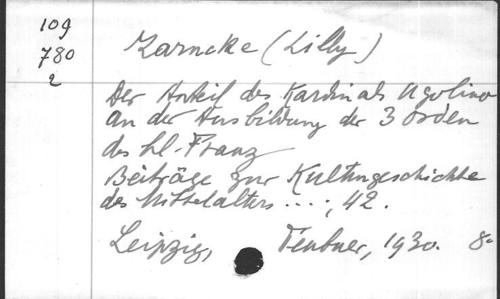 109
780
2
Zarncke (Lilly)
Der Anteil des Kardinals Ugolino
an der Ausbildung der 3 Orden
des hl. Franz
Beiträge zur Kulturgeschichte
des Mittelalters ....; 42.
Leipzig, Teubner, 1930. 8°